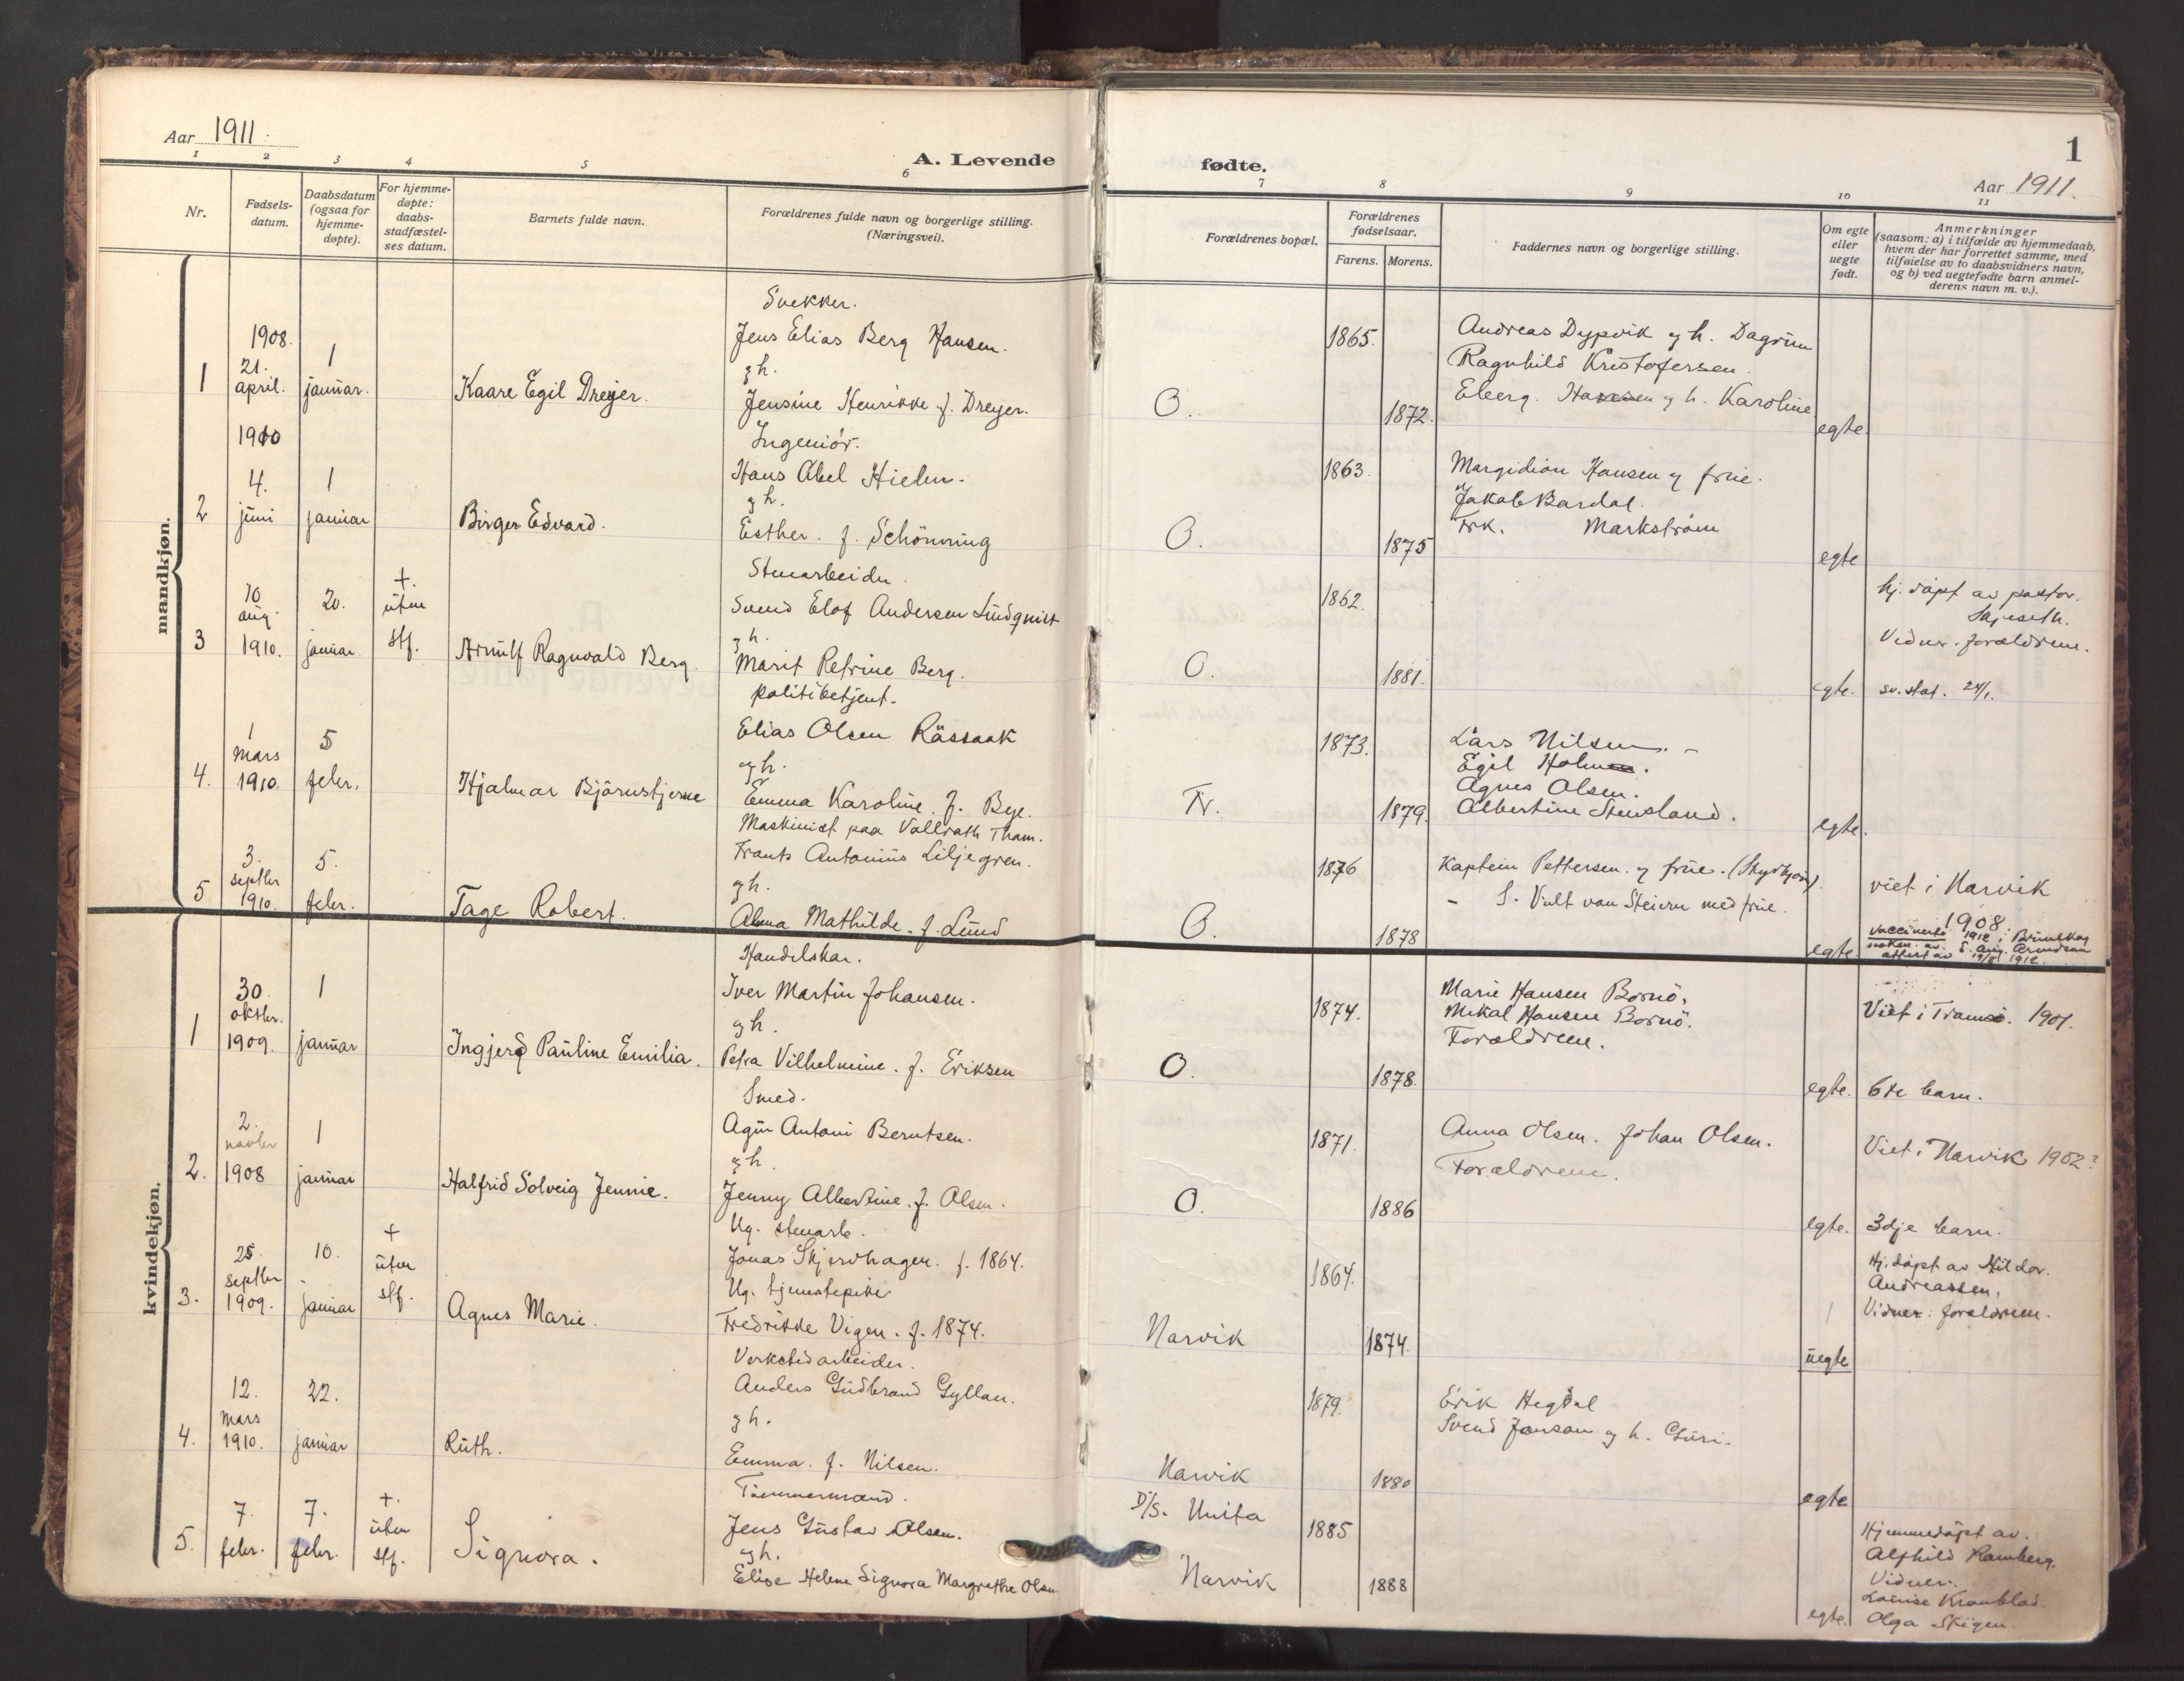 Aar 1911.
A. Levende
fødte.
1
Aar 1911.
1 2 3 4 5 6 7 8 9 10 11
Nr.
Fødsels-
datum.
Daabsdatum
(ogsaa for
hjemme-
døpte).
For hjemme-
døpte:
daabs-
stadfæstel-
ses datum.
Barnets fulde navn.
Forældrenes fulde navn og borgerlige stilling.
(Næringsvei).
Forældrenes bopæl.
Forældrenes
fødselsaar.
Farens. Morens.
Faddernes navn og borgerlige stilling.
Om egte
eller
uegte
født.
Anmerkninger
(saasom: a) i tilfælde av hjemmedaab,
hvem der har forrettet samme, med
tilføielse av to daabsvidners navn,
og b) ved uegtefødte barn anmel-
derens navn m. v.).
mandkjøn.
1
1908.
21.
april.
1
januar.
Kaare Egil Dreyer.
Snekker.
Jens Elias Berg Hansen.
og h.
Jensine Henrikke f. Dreyer.
O.
1865.
1872.
Andreas Dypvik og h. Dagrun
Ragnhild Kristofersen.
Eberg. Hansen og h. Karoline
egte.
2
1910
4.
juni
1
januar
Birger Edvard.
Ingeniør.
Hans Abel Hielm.
og h.
Esther. f. Schönning
O.
1863.
1875
Margidian Hansen og frue.
Jakob Bardal.
Frk. Markström
egte
3
10
aug.
1910.
20.
januar.
+.
uten
stf.
Arnulf Ragnvald Berg.
Stenarbeider.
Svend Elof Andersen Lindqvist
og h.
Marit Petrine Berg.
O.
1862.
1881.
egte.
hj. døpt av pastor.
Skjeseth.
Vidner. forældrene.
sv. stat. 24/1.
4.
1
mars
1910.
5
febr.
Hjalmar Björnstjerne
politibetjent.
Elias Olsen Rässaak
og h.
Emma Karoline. f. Bye.
Tr.
1873.
1879.
Lars Nilsen. -
Egil Holm.
Agnes Olsen.
Albertine Stensland.
egte.
5
3.
septbr
1910.
5.
febr.
Tage Robert.
Maskinist paa Vollrath Tham.
Frants Antonius Liljegren.
og h.
Alma Mathilde. f. Lund
O.
1876
1878
Kaptein Pettersen. og frue. (Skydkjær).
- S. Vult von Steiern med frue.
egte.
viet i Narvik
1908.
vaccinerte 1912 i Brunskog
soken av E. Aug. Arvidson
attest av 19/8 1912.
kvindekjøn.
1
30.
oktbr.
1909.
1
januar
Ingjerd Pauline Emilia.
Handelskar.
Iver Martin Johansen.
og h.
Petra Vilhelmine. f. Eriksen
O.
1874.
1878.
Marie Hansen Bornö.
Mikal Hansen Bornö.
Forældrene.
egte.
Viet i Tromsö. 1901.
6te barn.
2.
2.
novbr
1908
1
januar
Halfrid Solveig Jennie.
Smed.
Agin Antoni Berntsen.
og h.
Jenny Albertine. f. Olsen.
O.
1871.
1886
Anna Olsen. Johan Olsen.
Forældrene.
egte.
Viet i Narvik 1902?
3dje barn.
3.
25.
septbr
1909.
10.
januar
+
uten
stf.
Agnes Marie.
Ug. stenarb.
Jonas Skjervhagen. f. 1864.
Ug. tjenestepike
Fredrikke Vigen. f. 1874.
Narvik
1864.
1874.
uegte
Hj. døpt av Hildor.
Andreassen.
Vidner: forældrene.
4.
12.
mars
1910.
22.
januar
Ruth.
Verkstedarbeider.
Anders Gudbrand Gyllan.
og h.
Emma. f. Nilsen.
Narvik
1879.
1880
Erik Hegdal
Svend Jonson og h. Guri.
egte
5.
7.
febr.
7.
febr.
+.
uten
stf.
Signora.
Tømmermand.
Jens Gustav Olsen.
og h.
Elise Helene Signora Margrethe Olsen
D/S. Unita
Narvik
1885
1888
egte.
Hjemmedøpt av.
Alfhild Ramberg.
Vidner:
Louise Kronblad.
Olga Skigen.